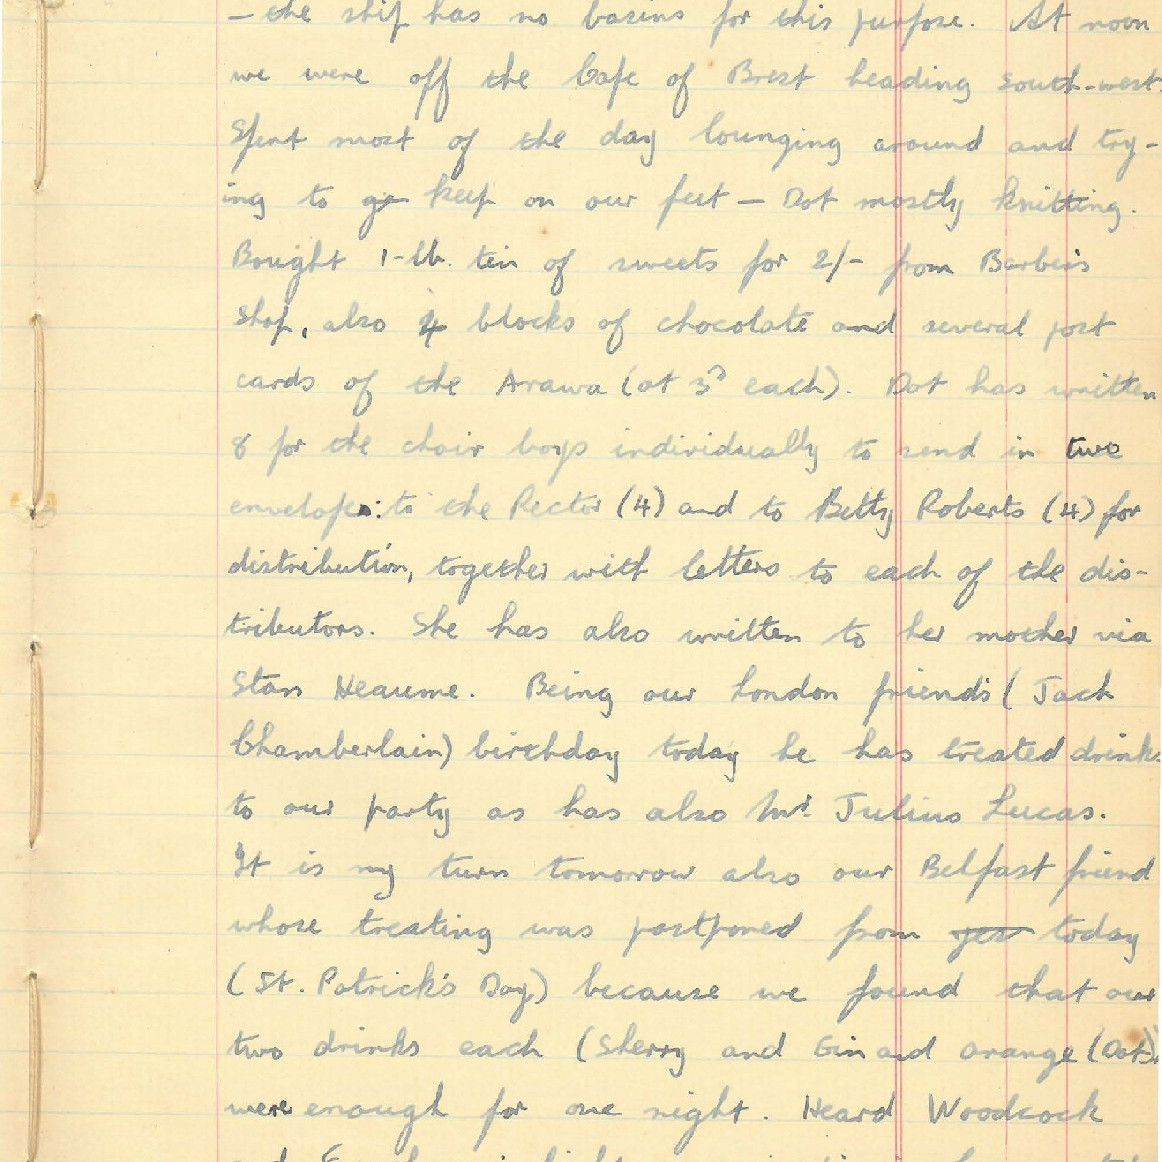 — the ship has no basins for this purpose. At noon
we were off the Cape of Brest heading south-west.
Spent most of the day lounging around and try-
ing to go keep on our feet — Dot mostly knitting.
Bought 1-lb. tin of sweets for 2/- from Barber's
Shop, also 4 blocks of chocolate and several post
cards of the Arawa (at 3d each). Dot has written
8 for the choir boys individually to send in two
envelopes: to the Rector (4) and to Betty Roberts (4) for
distribution, together with letters to each of the dis-
tributors. She has also written to her mother via
Stan Heaume. Being our London friends (Jack
Chamberlain) birthday today he has treated drinks
to our party as has also Mr. Julius Lucas.
It is my turn tomorrow also our Belfast friend
whose treating was postponed from yes today
(St. Patrick's Day) because we found that our
two drinks each (Sherry and Gin and Orange (Dot)).
were enough for one night. Heard Woodcock
and